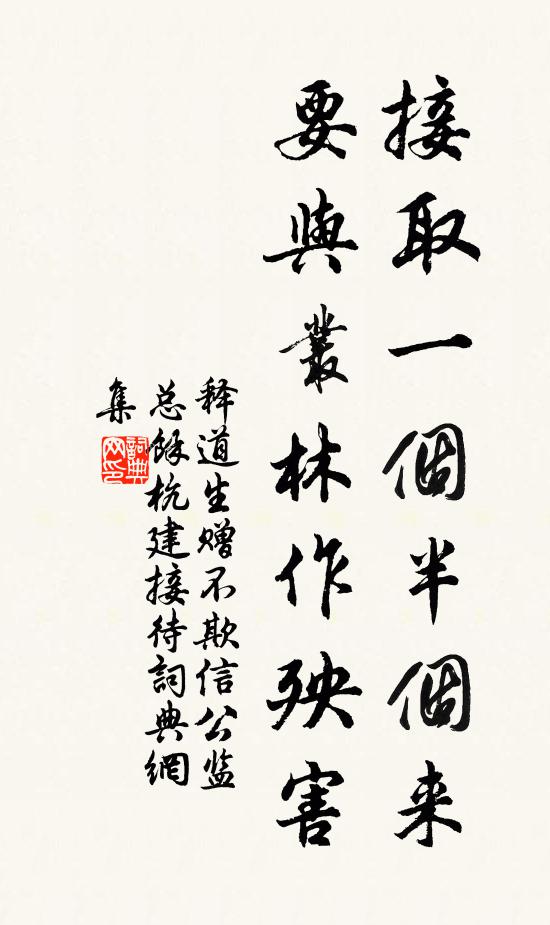 接取一個半個来
要與叢林作殃害
释道生赠不欺信公监
总馀杭建接待詞典網
集
詞典網印